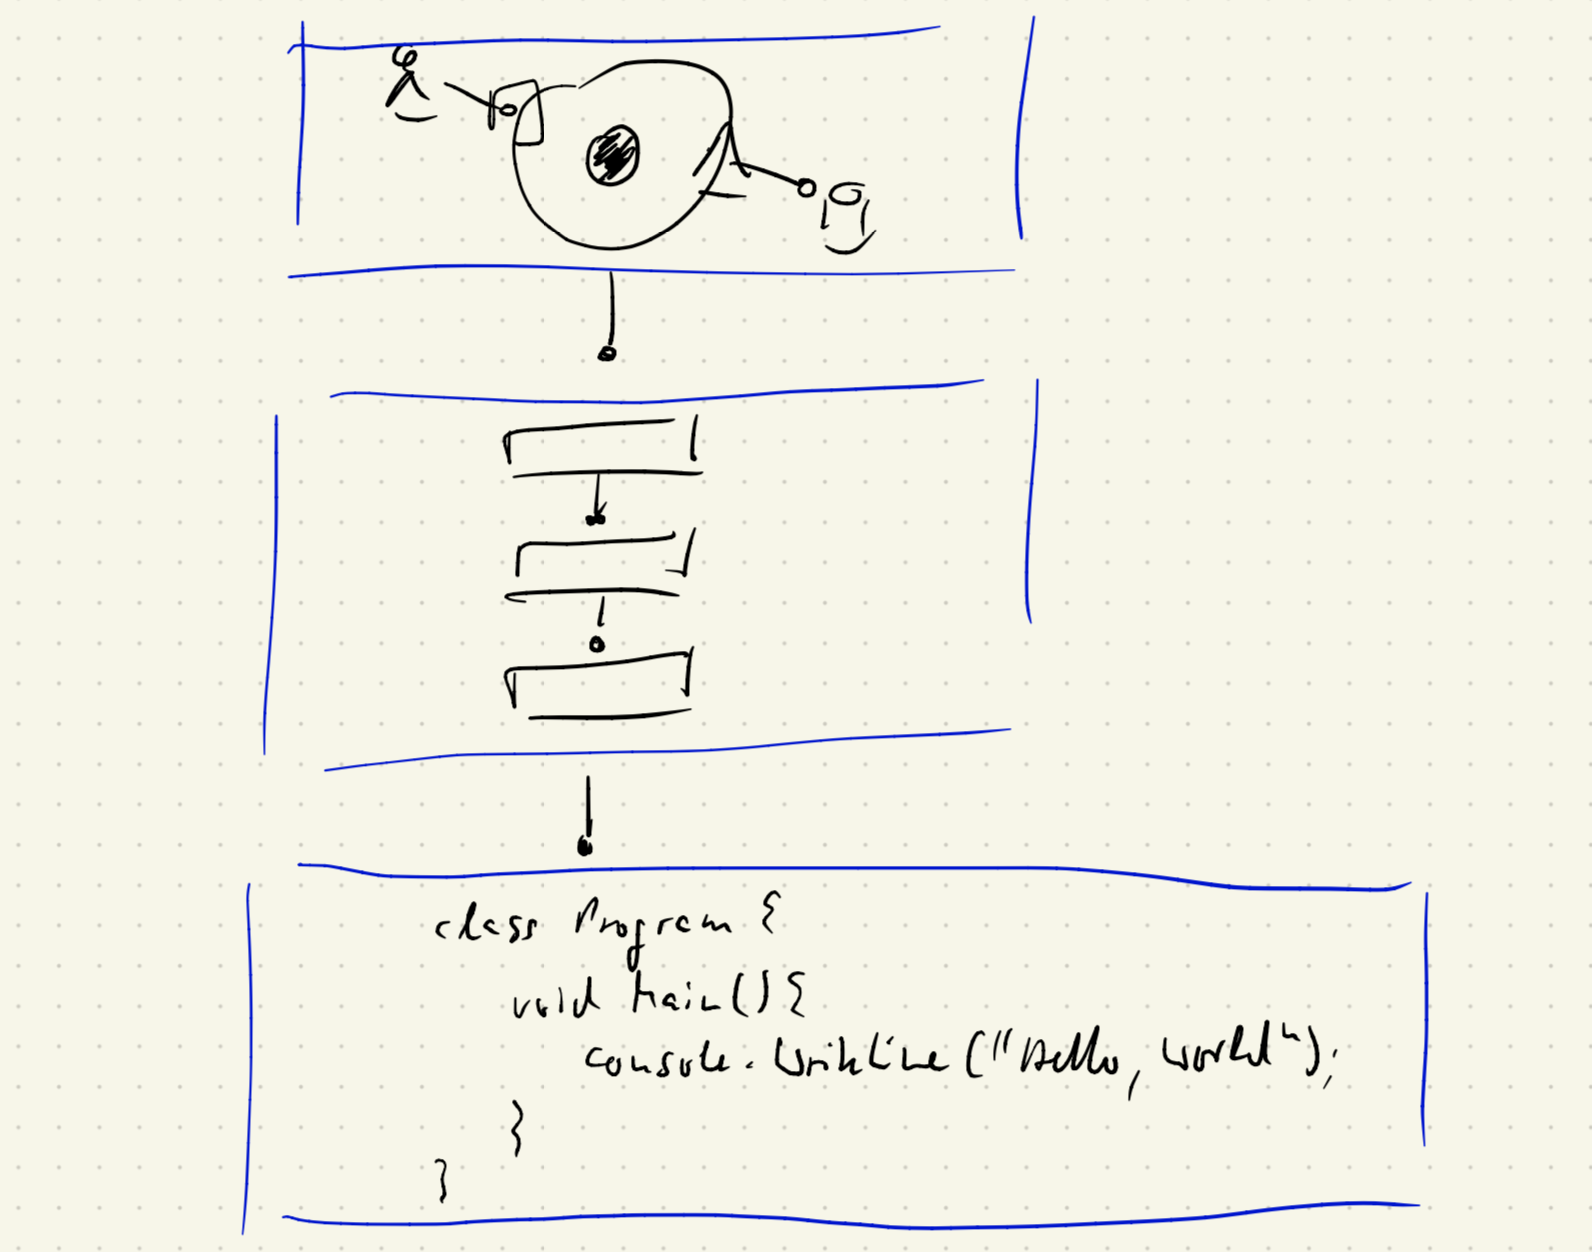 class Program {
void Main() {
console.WriteLine("Hello, World");
}
}